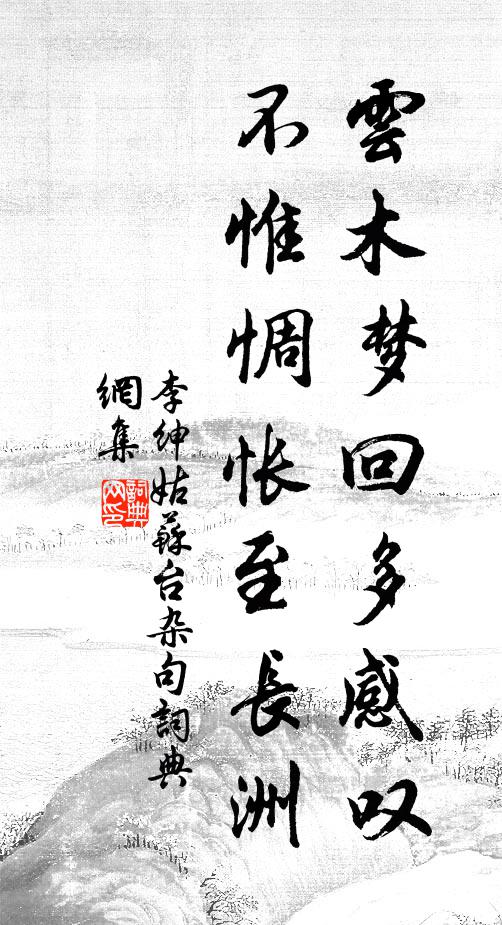 雲木梦回多感叹
不惟惆怅至長洲
李紳姑蘇台杂句詞典
網集
詞典
网印